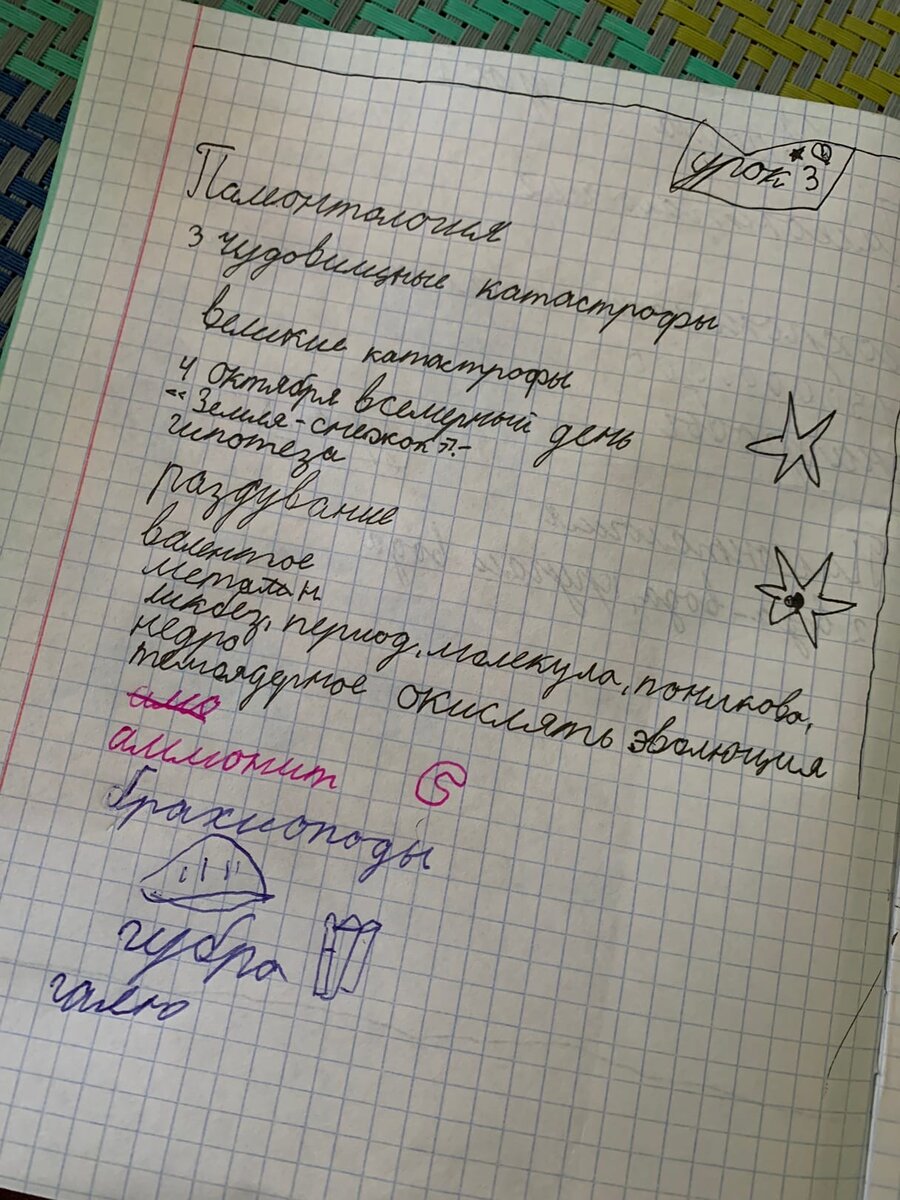 урок 3
Палеонтология
3 чудовищные катастрофы
великие катастрофы
4 октября всемерный день
«Земля-снежок»-
гипотеза
раздувание
валентое
метолан
ликбез, период, молекула, поникова,
недро
темоядерное окислять эволюция
амо
аммонит
брахиоподы
губра